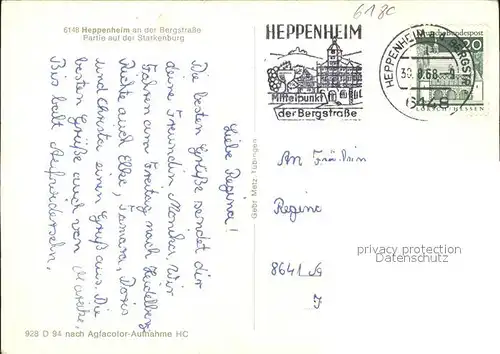 6148 Heppenheim an der Bergstraße
Partie auf der Starkenburg
618c
HEPPENHEIM
Mittelpunkt
der Bergstraße
HEPPENHEIM a. d. BERGSTR.
30.8.68
6148
Deutsche Bundespost
20
LORSCH/HESSEN
Liebe Regina!
Die besten Grüße sendet dir
deine Freundin Monika. Wir
fahren am Freitag nach Heidelberg
Richte auch Elke, Tamara, Doris
und Christa einen Gruß aus. Die
besten Grüße auch von Mareike,
Bis balt Aufwiedersehn,
Gebr. Metz, Tübingen
An Fräulein
Regina
8641
privacy protection
Datenschutz
928 D 94 nach Agfacolor-Aufnahme HC